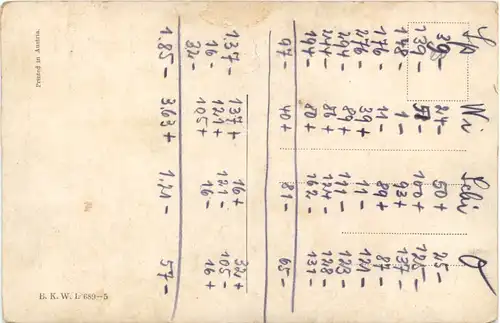 Wi
39- 24- 50+ 25-
139- 100+
1- 93+ 137-
176- 11- 89+ 87-
276- 39+ 11- 121-
294- 89+ 111- 123-
244- 86+ 124- 128-
194- 80+ 162- 131-
97- 40+ 81- 65-
137- 137+ 16+ 32+
16- 121+ 121- 105-
32- 105+ 16- 16+
185- 363+ 1,21- 57-
Printed in Austria.
B. K. W. I. 689-5